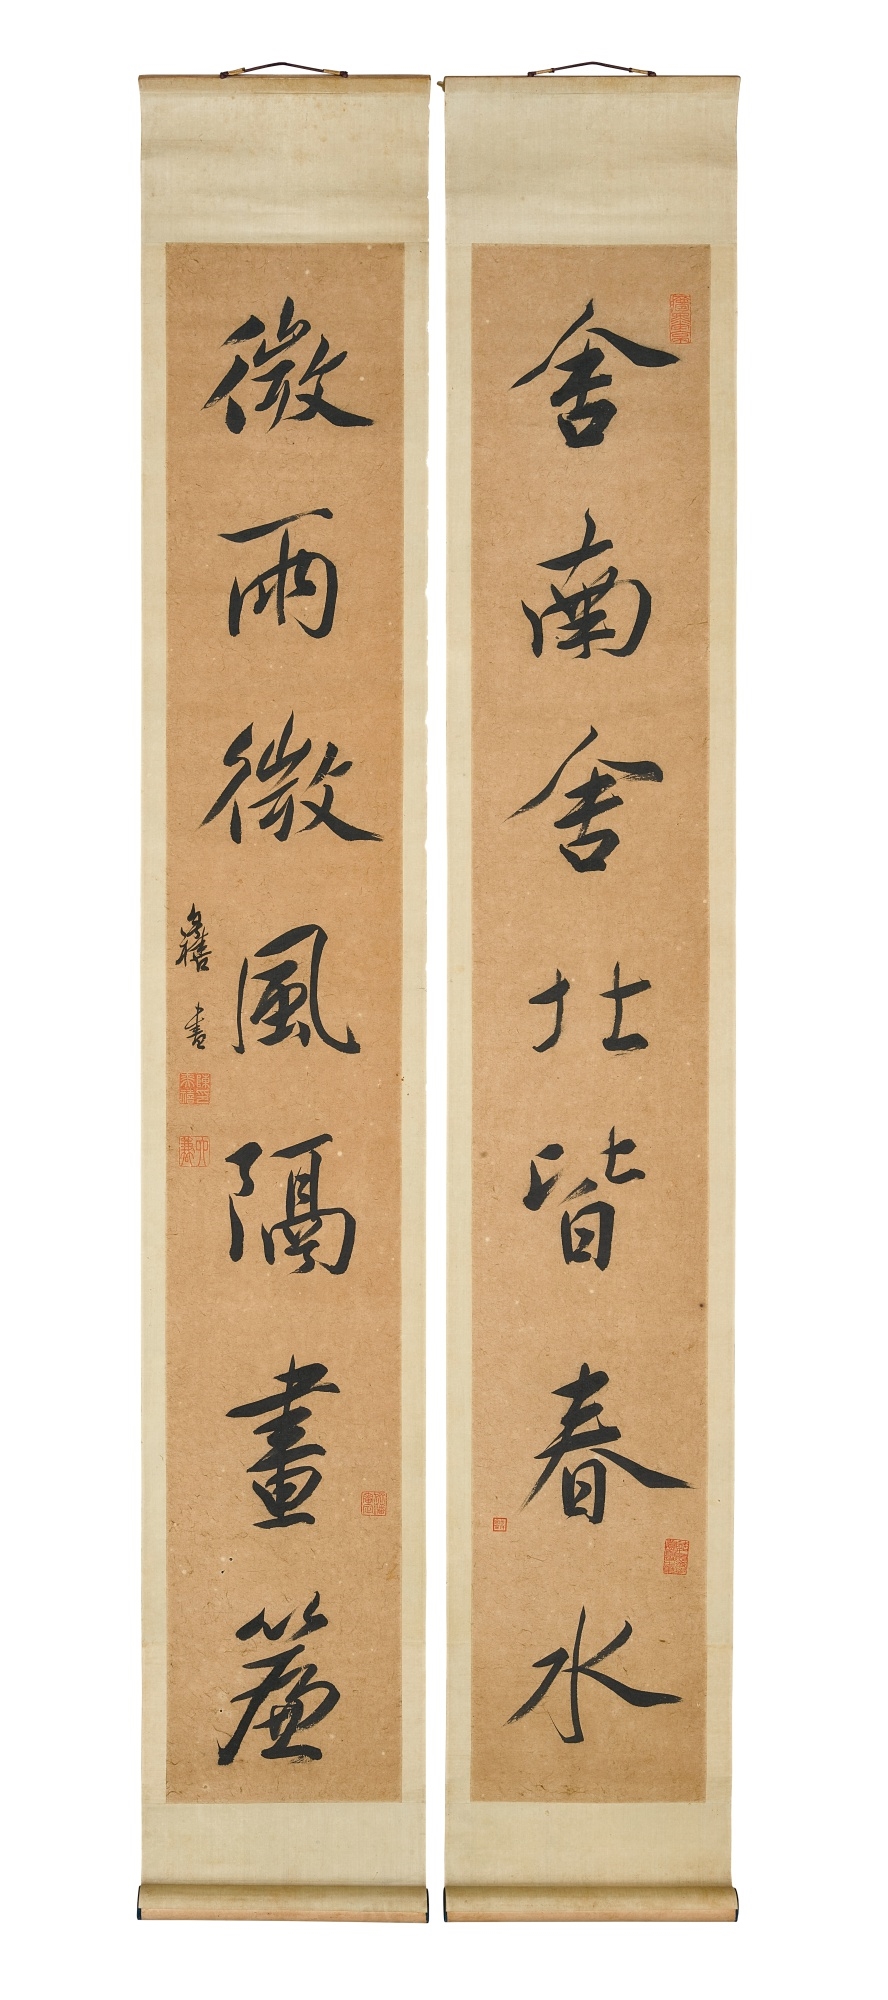 舍南舍北皆春水
微雨微風隔畫簾
奕禧書